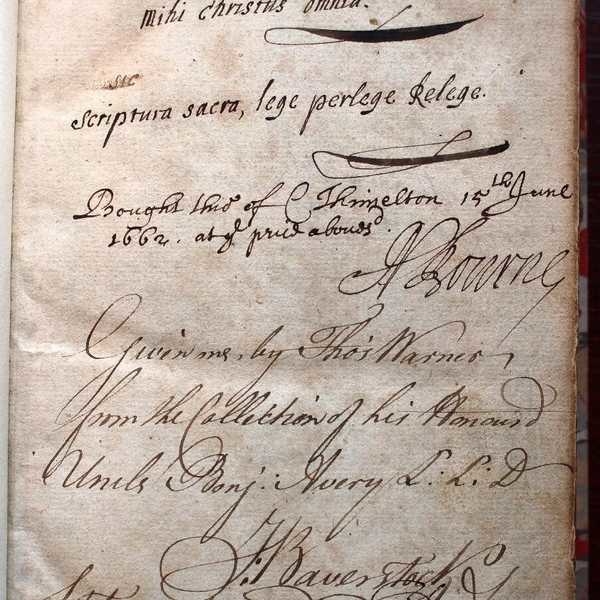 mihi christus omnia.
sic
scriptura sacra, lege perlege Relege.
Bought this of C Thinzelton 15th June
1662. at ye price abovesd.
A Bourne
Given me, by Thos Warner,
from the Collection of his Honourd
Uncle Benj: Avery L: L: D
J: Baverstock